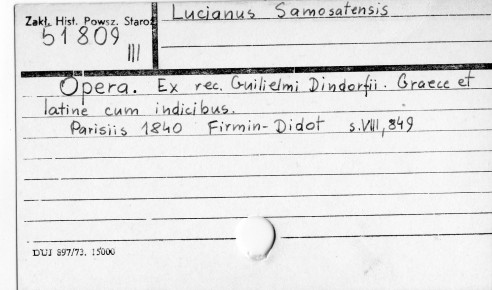 Zakł. Hist. Powsz. Staroż
51809
III
Lucianus Samosatensis
Opera. Ex rec. Guilielmi Dindorfii. Graece et
latine cum indicibus.
Parisiis 1840 Firmin-Didot s.VIII, 849
DUJ 897/73. 15000